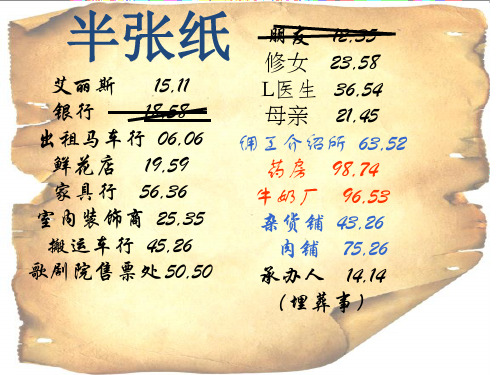 半张纸
艾丽斯 15,11
银行 18,58
出租马车行 06,06
鲜花店 19,59
家具行 56,36
室内装饰商 25,35
搬运车行 45,26
歌剧院售票处 50,50
朋友 12,35
修女 23,58
L医生 36,54
母亲 21,45
佣工介绍所 63,52
药房 98,74
牛奶厂 96,53
杂货铺 43,26
肉铺 75,26
承办人 14,14
(埋葬事)